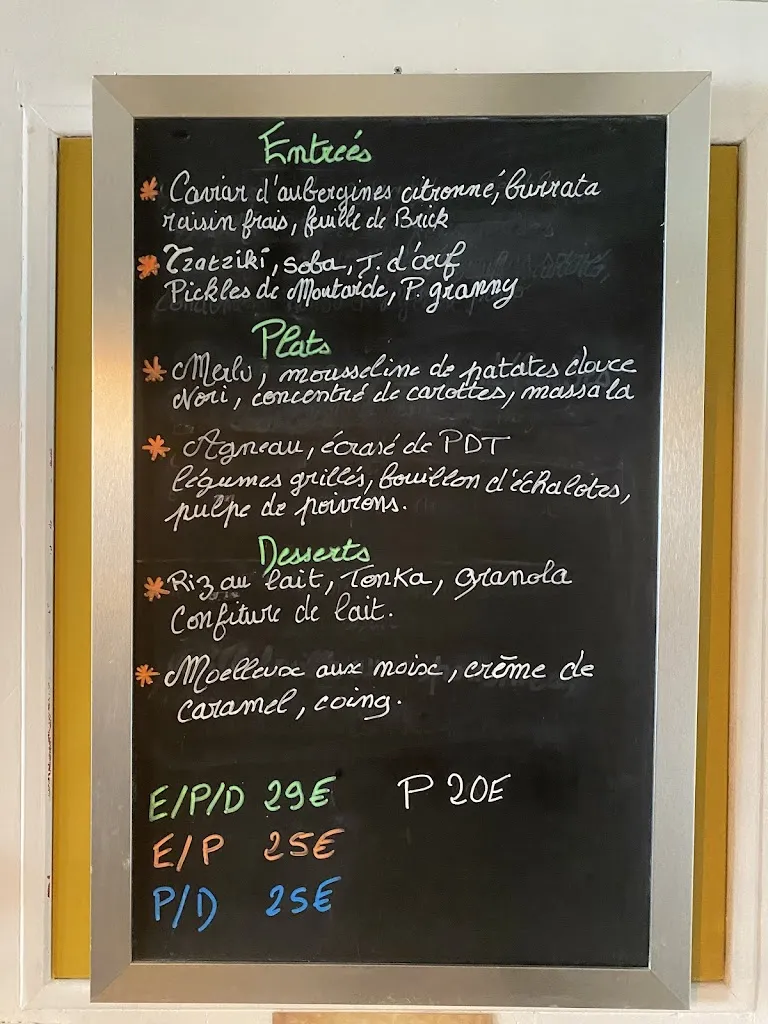 Entreés
* Caviar d'aubergines citronné, burrata
raisin frais, feuille de Brick
* Tzatziki, Soba, J. d'œuf
Pickles de Moutarde, P. granny
Plats
* Merlu, mousseline de patates douce
Nori, concentré de carottes, massala
* Agneau, écrasé de PDT
légumes grillés, bouillon d'échalotes,
pulpe de poivrons.
Desserts
* Riz au lait, Tonka, granola
Confiture de lait.
* Moelleux aux noix, crême de
caramel, coing.
E/P/D 29€ P 20€
E/P 25€
P/D 25€